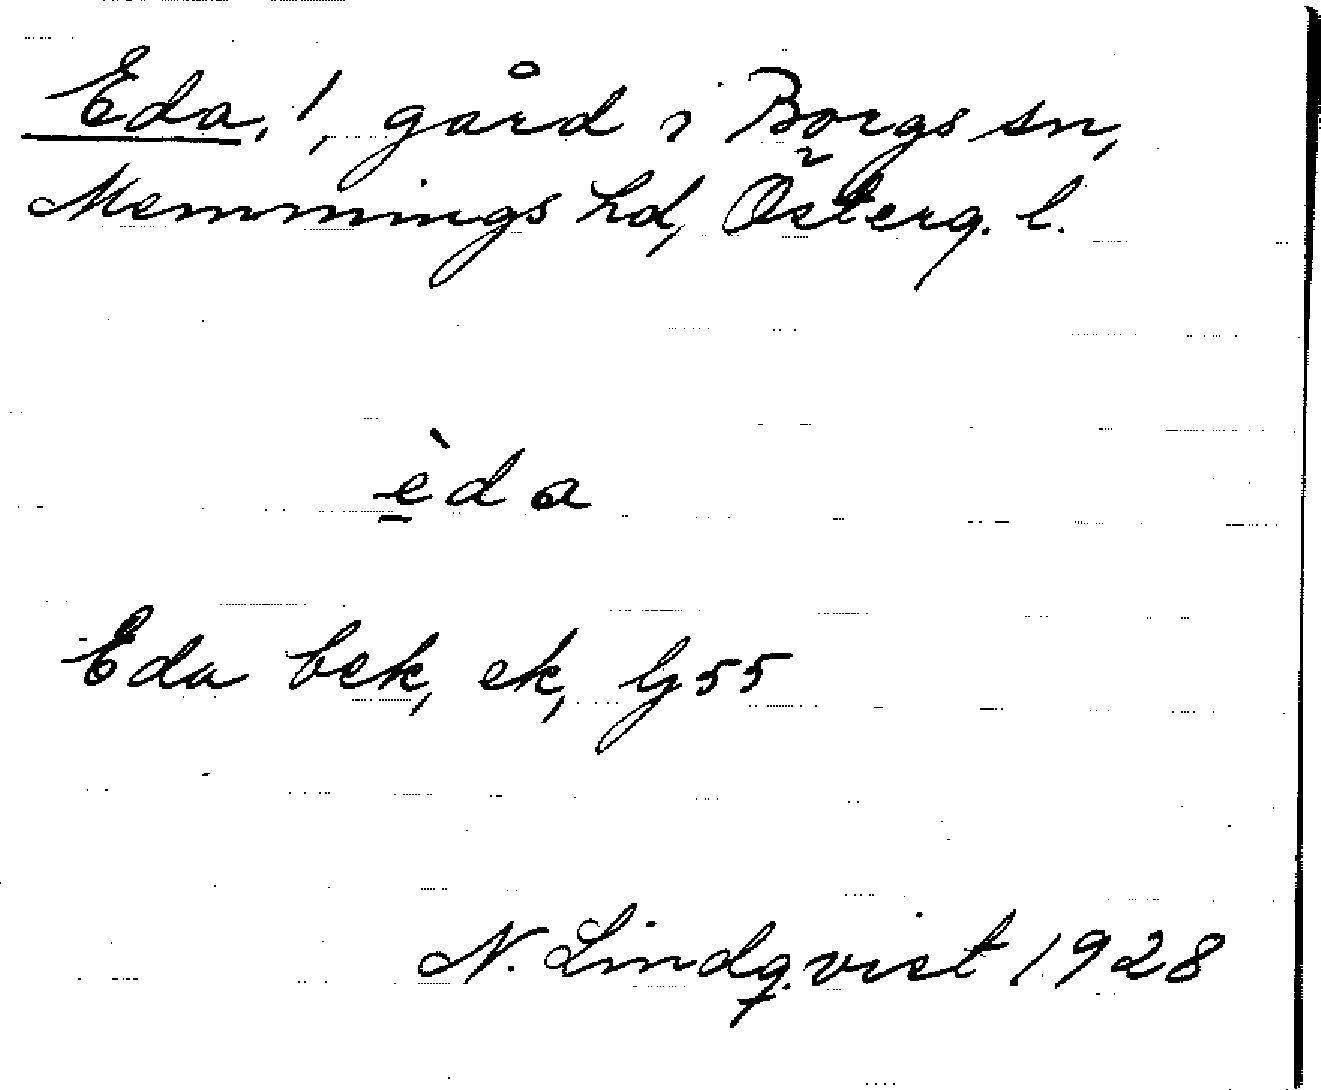 Eda, 1, gård i Borgs sn,
Memmings hd, Österg. l.
èda
Eda bek, ek, lj 55
N. Lindqvist 1928